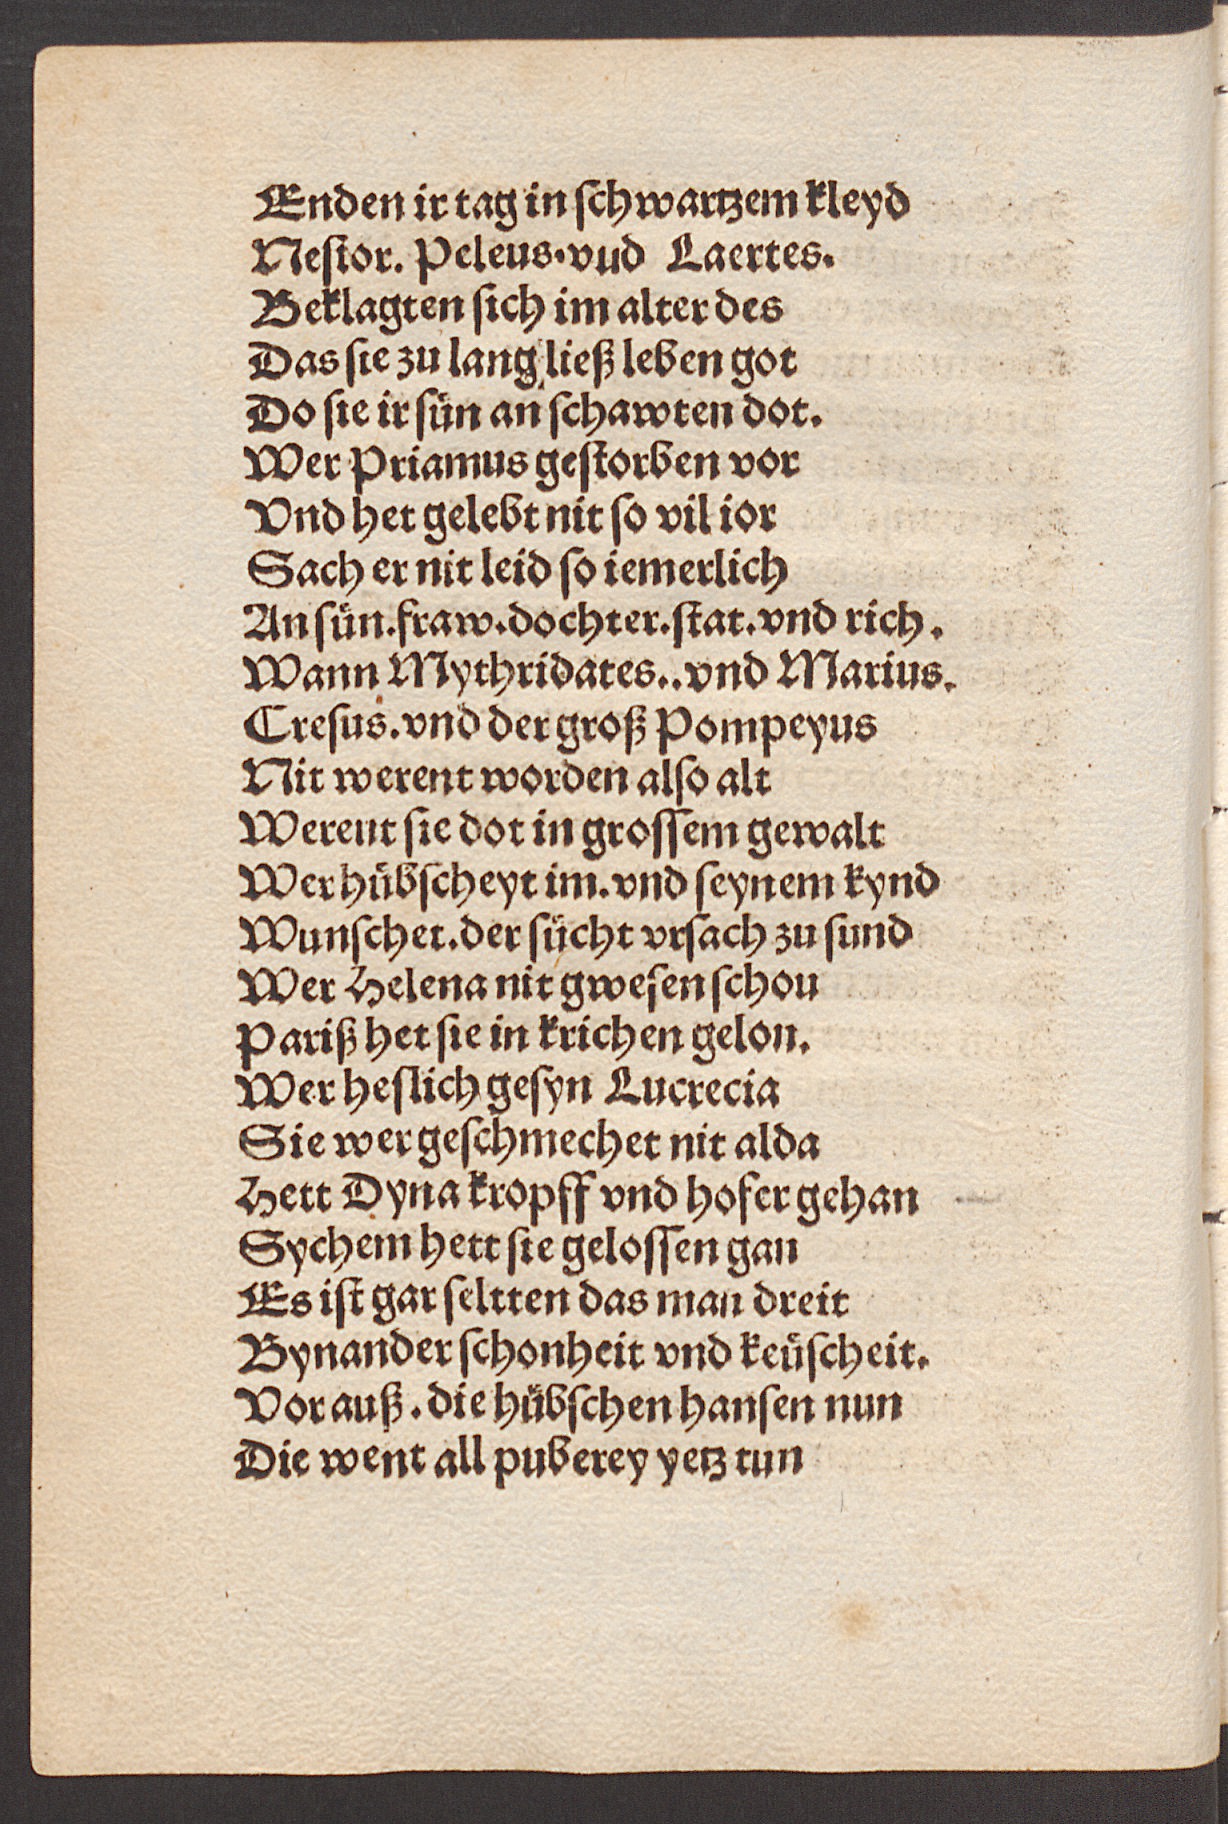 Enden ir tag in ſchwartzem kleyd
Neſtor. Peleus. vud Laertes.
Beklagten ſich im alter des
Das ſie zu lang ließ leben got
Do ſie ir ſün an ſchawten dot.
Wer Priamus geſtorben vor
Vnd het gelebt nit ſo vil ior
Sach er nit leid ſo iemerlich
An ſün. fraw. dochter. ſtat. vnd rich.
Wann Mythridates.. vnd Marius.
Creſus. vnd der groß Pompeyus
Nit werent worden alſo alt
Wereut ſie dot in groſſem gewalt
Wer hübſcheyt im. vnd ſeynem kynd
Wunſchet. der ſücht vrſach zu ſund
Wer Helena nit gweſen ſchou
Pariß het ſie in krichen gelon.
Wer heſlich geſyn Lucrecia
Sie wer geſchmechet nit alda
Hett Dyna kropff vnd hofer gehan
Sychem hett ſie geloſſen gan
Es iſt gar ſeltten das man dreit
Bynander ſchonheit vnd keüſcheit.
Vor auß. die hübſchen hanſen nun
Die went all puberey yetz tun